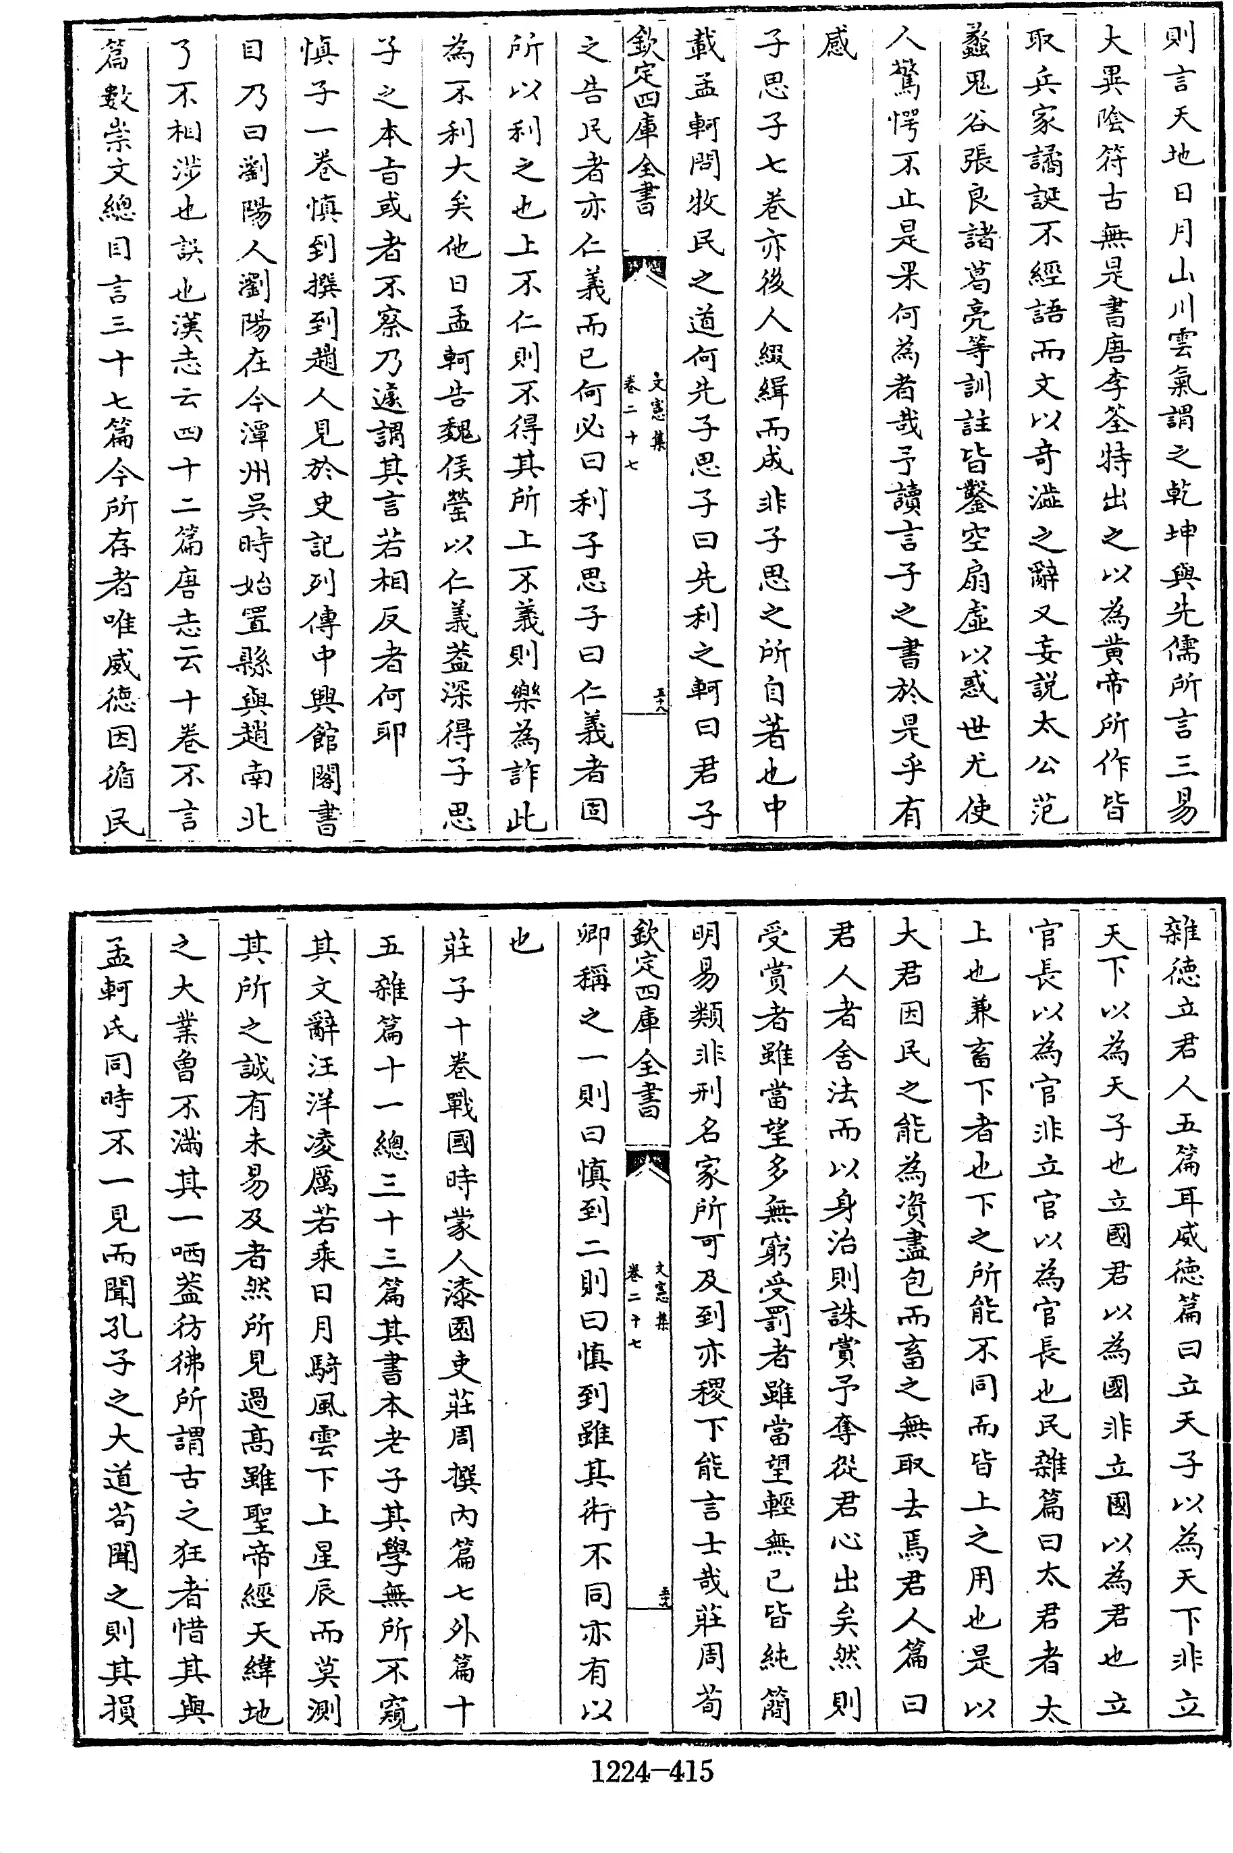 則言天地日月山川雲氣謂之乾坤與先儒所言三易
大異陰符古無是書唐李筌特出之以為黄帝所作皆
取兵家譎誕不經語而文以奇澁之辭又妄説太公范
蠡鬼谷張良諸葛亮等訓註皆鑿空扇虛以惑世尤使
人驚愕不止是果何為者哉予讀言子之書於是乎有
感
子思子七卷亦後人綴緝而成非子思之所自著也中
載孟軻問牧民之道何先子思子曰先利之軻曰君子
欽定四庫全書
文憲集
卷二十七
五十八
之告民者亦仁義而已何必曰利子思子曰仁義者固
所以利之也上不仁則不得其所上不義則樂為詐此
為不利大矣他日孟軻告魏侯罃以仁義蓋深得子思
子之本旨或者不察乃遽謂其言若相反者何耶
慎子一卷慎到撰到趙人見於史記列傳中興館閣書
目乃曰瀏陽人瀏陽在今潭州吳時始置縣與趙南北
了不相涉也誤也漢志云四十二篇唐志云十卷不言
篇數崇文總目言三十七篇今所存者唯威德因循民
雜德立君人五篇耳威德篇曰立天子以為天下非立
天下以為天子也立國君以為國非立國以為君也立
官長以為官非立官以為官長也民雜篇曰太君者太
上也兼畜下者也下之所能不同而皆上之用也是以
大君因民之能為資盡包而畜之無取去焉君人篇曰
君人者舍法而以身治則誅賞予奪從君心出矣然則
受賞者雖當望多無窮受罰者雖當望輕無已皆純簡
明易類非刑名家所可及到亦稷下能言士哉莊周荀
欽定四庫全書
文憲集
卷二十七
五十九
卿稱之一則曰慎到二則曰慎到雖其術不同亦有以
也
莊子十卷戰國時蒙人漆園吏莊周撰内篇七外篇十
五雜篇十一總三十三篇其書本老子其學無所不窺
其文辭汪洋凌厲若乘日月騎風雲下上星辰而莫測
其所之誠有未易及者然所見過高雖聖帝經天緯地
之大業曾不滿其一哂蓋彷彿所謂古之狂者惜其與
孟軻氏同時不一見而聞孔子之大道茍聞之則其損
1224-415